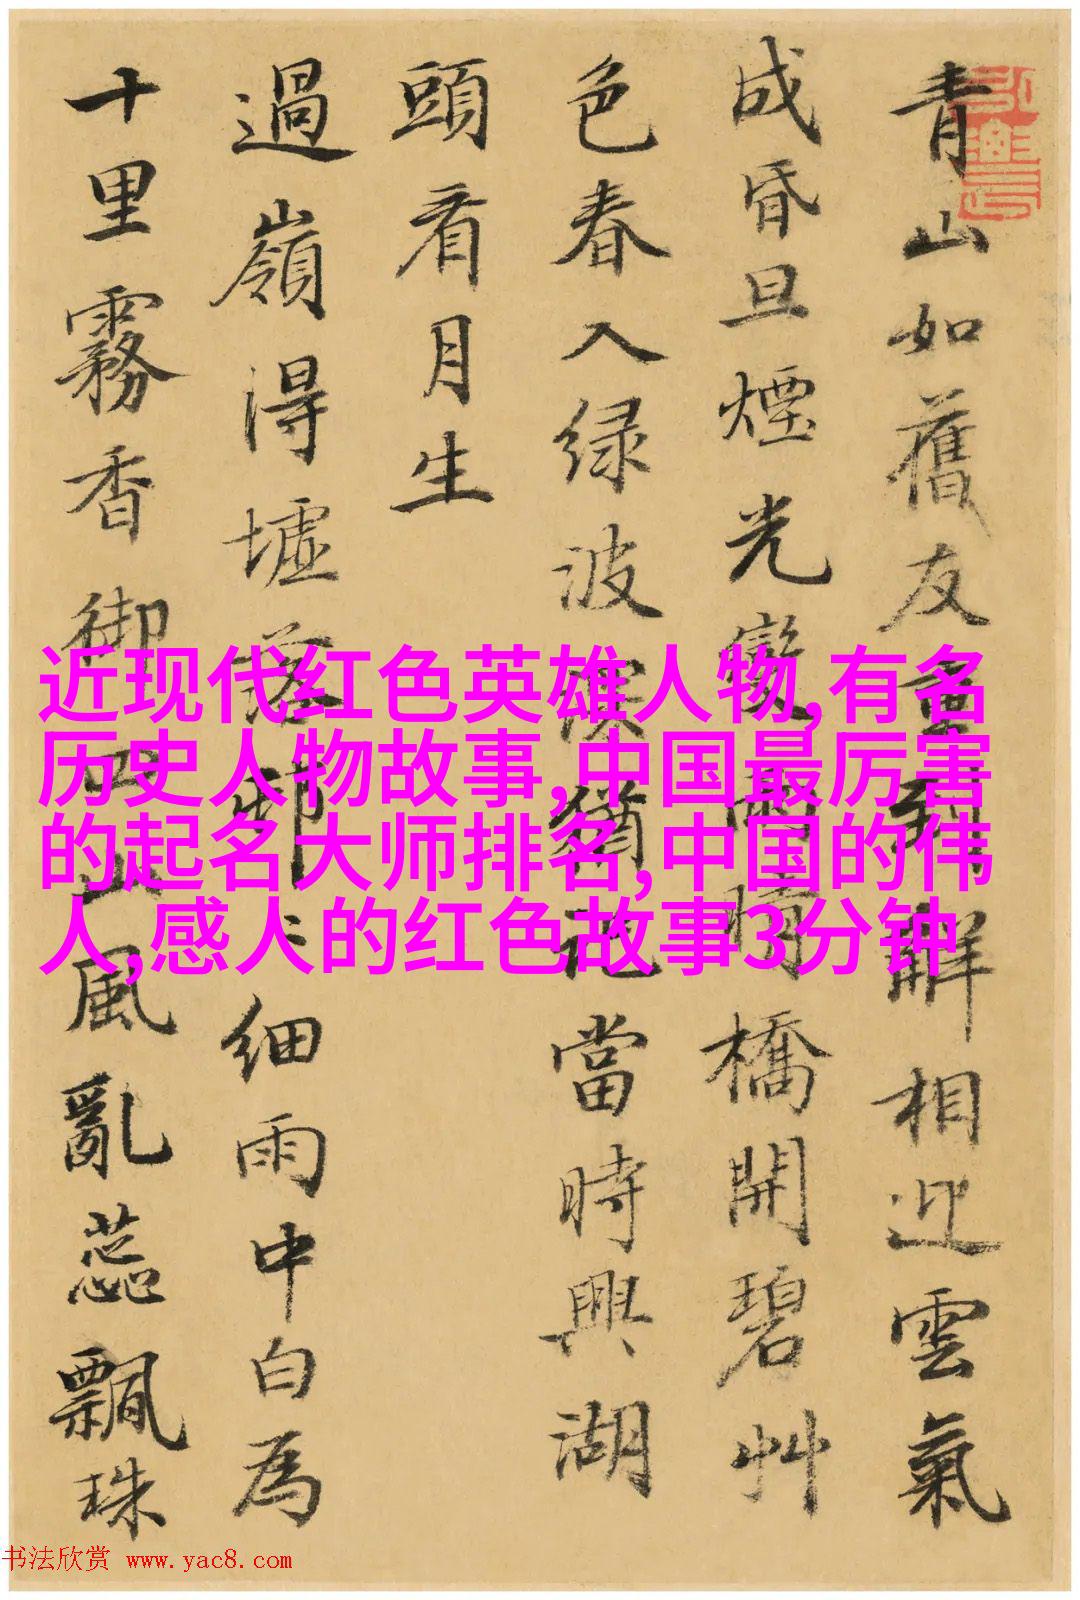 青山如舊友重到解相迎雲氣
成昏旦煙光變雨晴橋開碧艸
色春入緑波深猶記當時興湖
頭看月生
過嶺得墟落邨〻細雨中白為
十里霧香御四山風亂蕊飄珠
近现代红色英雄人物,有名
历史人物故事,中国最厉害
的起名大师排名,中国的伟
人,感人的红色故事3分钟
书法欣赏 www.yac8.com